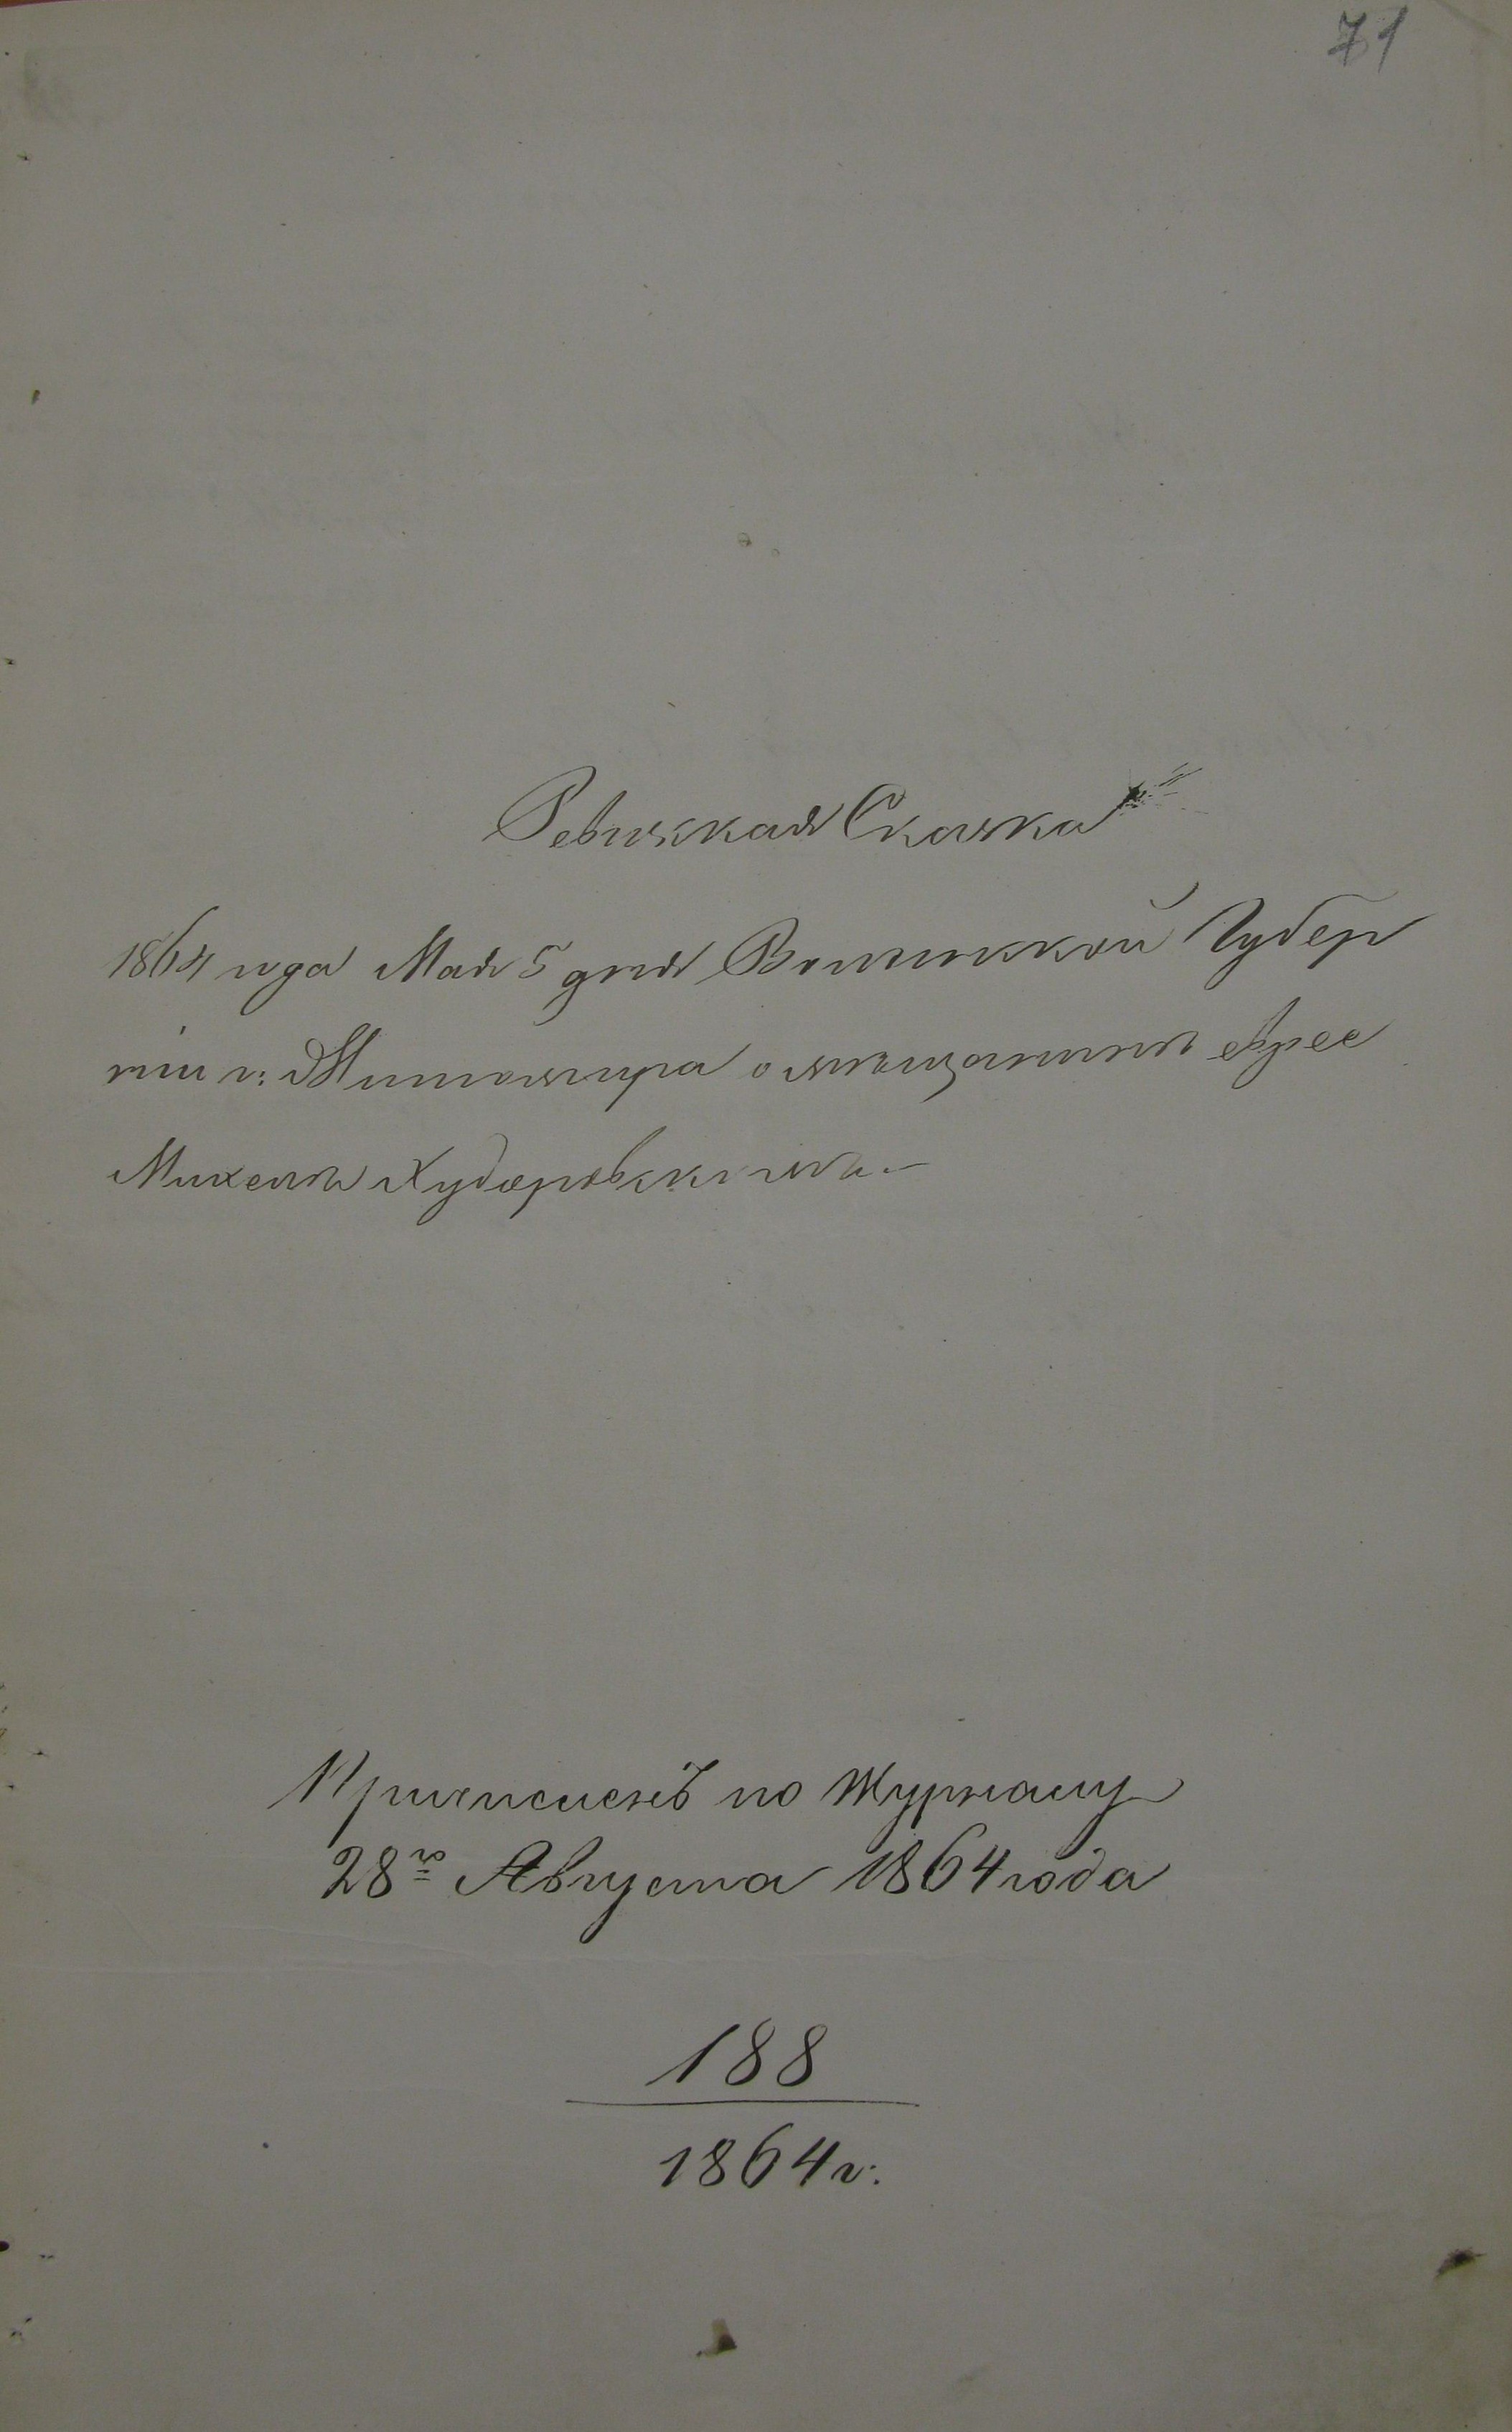 71
Ревизская Сказка
1864 года Мая 5 дня Волынской Губер
ніи г: Житомира о мѣщанинѣ еврее
Михелѣ
Причисленъ по Журналу
28го Августа 1864 года
188
1864 г.